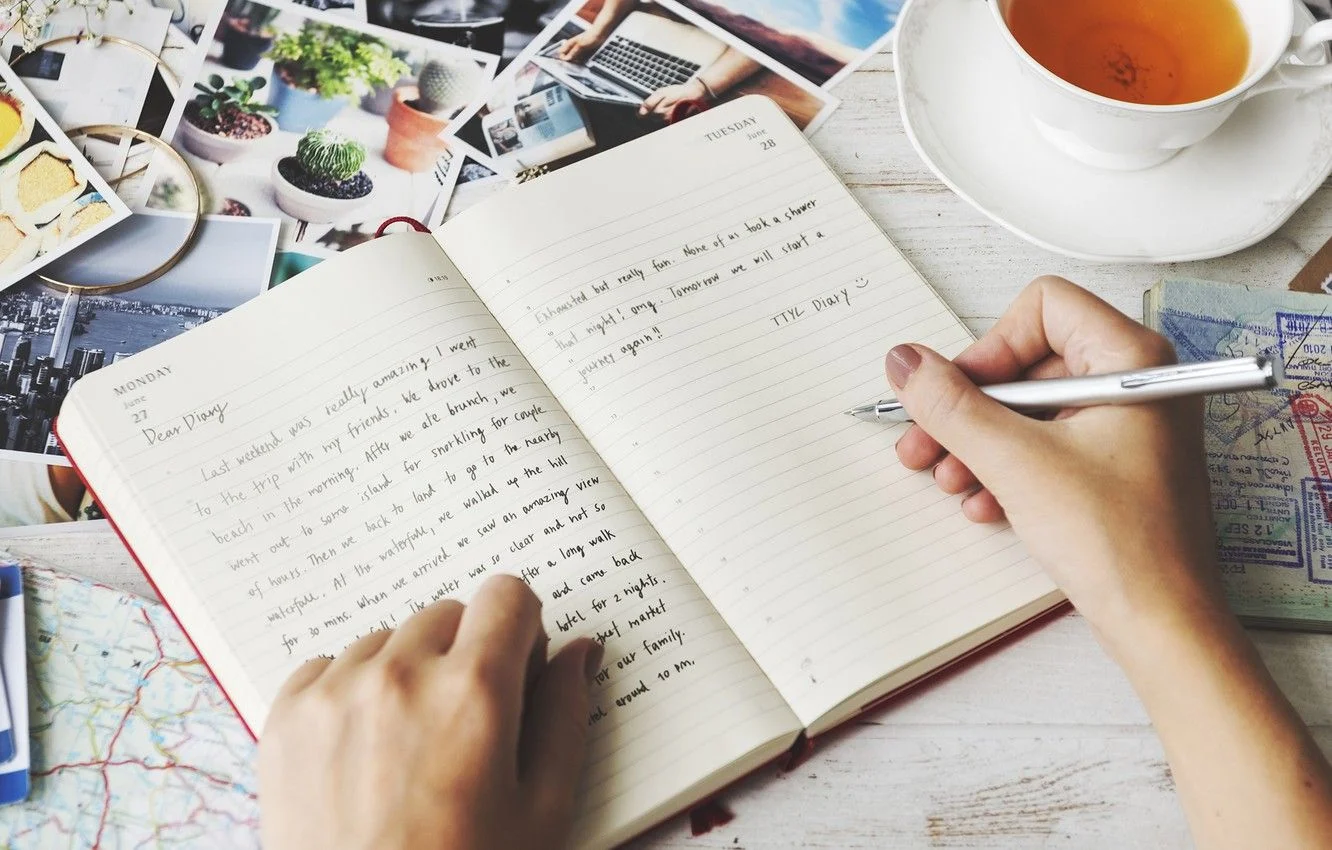 MONDAY
June
27
Dear Diary
Last weekend was really amazing I went
to the trip with my friends. We drove to the
beach in the morning. After we ate brunch, we
went out to some island for snorkling for couple
of hours. Then we back to land to go to the nearby
waterfall. At the waterfall, we walked up the hill
for 30 mins. When we arrived we saw an amazing view
fall! The water was so clear and not so
after a long walk
and came back
hotel for 2 nights.
market
for our family.
around 10 pm.
TUESDAY
June
28
Exhausted but really fun. None of us took a shower
that night!, omg. Tomorrow we will start a
journey again!!
TTYL Diary
2010
2010
12 SEP